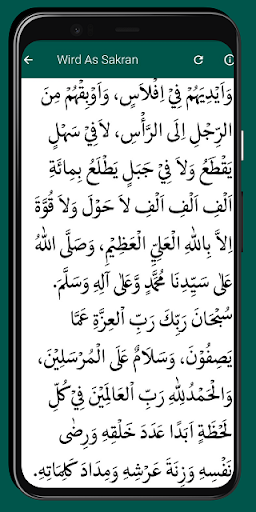 Wird As Sakran
وَاَيْدِيَهُمْ فِيْ اِفْلَاسٍ، وَاَوْبِقْهُمْ مِنَ
الرِّجْلِ اِلَى الرَّأْسِ، لَافِيْ سَهْلٍ
يَقْطَعُ وَلَا فِيْ جَبَلٍ يَطْلَعُ بِمِائَةِ
اَلْفِ اَلْفِ اَلْفِ لَا حَوْلَ وَلَا قُوَّةَ
اِلَّا بِاللهِ الْعَلِيِّ الْعَظِيْمِ، وَصَلَّى اللهُ
عَلَى سَيِّدِنَا مُحَمَّدٍ وَّعَلَى اٰلِهِ وَسَلَّمَ.
سُبْحَانَ رَبِّكَ رَبِّ الْعِزَّةِ عَمَّا
يَصِفُوْنَ، وَسَلَامٌ عَلَى الْمُرْسَلِيْنَ،
وَالْحَمْدُلِلّٰهِ رَبِّ الْعَالَمِيْنَ فِيْ كُلِّ
لَحْظَةٍ اَبَدًا عَدَدَ خَلْقِهِ وَرِضٰى
نَفْسِهِ وَزِنَةَ عَرْشِهِ وَمِدَادَ كَلِمَاتِهِ.